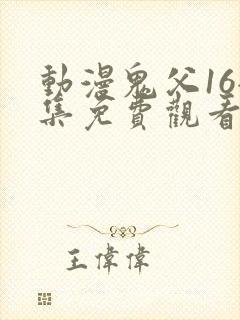 動漫鬼父16
集免費觀看
王偉偉